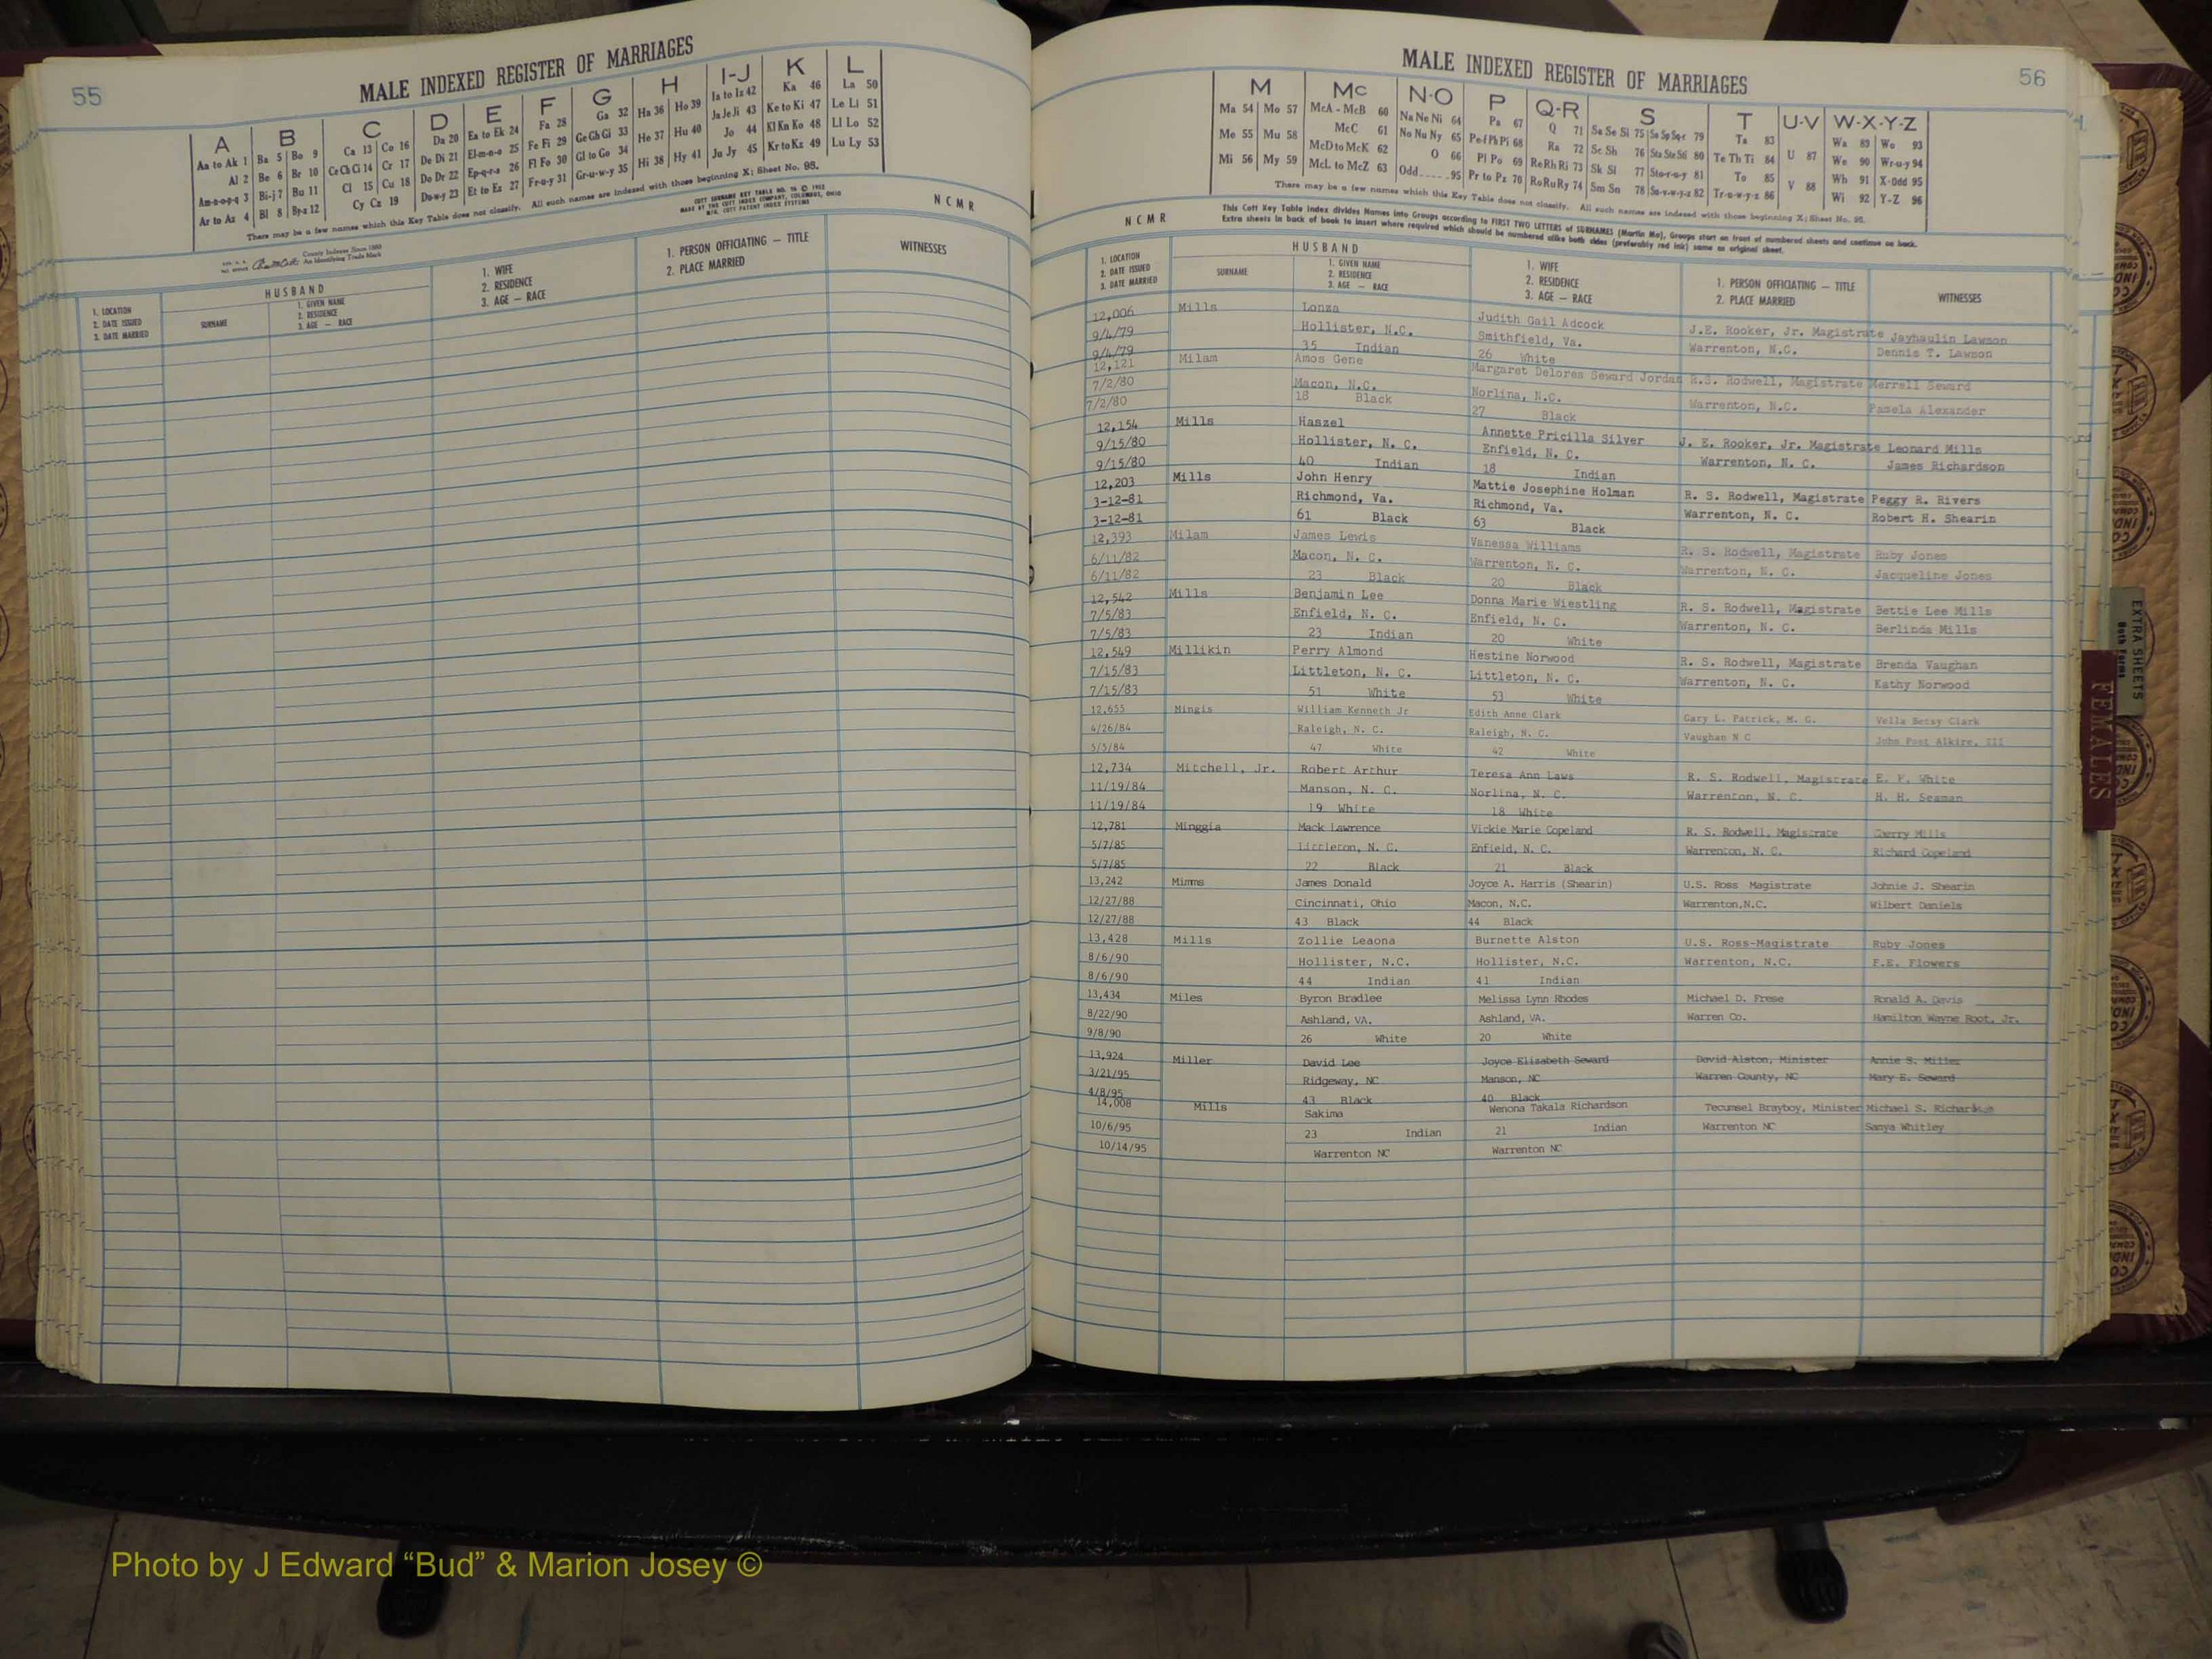 55
MALE INDEXED REGISTER OF MARRIAGES
A B C D E F G H I-J K L
Aa to Ak 1 Ba 5 Bo 9 Ca 13 Co 16 Da 20 Ea to Ek 24 Fa 28 Ga 32 Ha 36 Ho 39 Ia to Iz 42 Ka 46 La 50
Al 2 Be 6 Br 10 Ce Ch Ci 14 Cr 17 De Di 21 El-m-n-o 25 Fe Fi 29 Ge Gh Gi 33 He 37 Hu 40 Ja Je Ji 43 Ke to Ki 47 Le Li 51
Am-n-o-p-q 3 Bi-j 7 Bu 11 Cl 15 Cu 18 Do Dr 22 Ep-q-r-s 26 Fl Fo 30 Gl to Go 34 Hi 38 Hy 41 Jo 44 Kl Kn Ko 48 Ll Lo 52
Ar to Az 4 Bl 8 By-z 12 Cy Cz 19 Du-w-y 23 Et to Ez 27 Fr-u-y 31 Gr-u-w-y 35 Ju Jy 45 Kr to Kz 49 Lu Ly 53
There may be a few names which this Key Table does not classify. All such names are indexed with those beginning X; Sheet No. 95.
COTT SURNAME KEY TABLE NO.
MADE BY THE COTT INDEX COMPANY, COLUMBUS, OHIO
NCMR
County Indexes Since 1888
An Identifying Trade Mark
1. LOCATION
2. DATE ISSUED
3. DATE MARRIED
HUSBAND
SURNAME
1. GIVEN NAME
2. RESIDENCE
3. AGE — RACE
1. WIFE
2. RESIDENCE
3. AGE — RACE
1. PERSON OFFICIATING — TITLE
2. PLACE MARRIED
WITNESSES
MALE INDEXED REGISTER OF MARRIAGES
56
M Mc N-O P Q-R S T U-V W-X-Y-Z
Ma 54 Mo 57 McA - McB 60 Na Ne Ni 64 Pa 67 Q 71 Sa Se Si 75 So Sp Sq-r 79 Ta 83 U 87 Wa 89 Wo 93
Me 55 Mu 58 McC 61 No Nu Ny 65 Pe-f Ph Pi 68 Ra 72 Sc Sh 76 Sta Ste Sti 80 Te Th Ti 84 V 88 We 90 Wr-u-y 94
Mi 56 My 59 McD to McK 62 O 66 Pl Po 69 Re Rh Ri 73 Sk Sl 77 Sto-r-u-y 81 To 85 Wh 91 X-Odd 95
McL to McZ 63 Odd 95 Pr to Pz 70 Ro Ru Ry 74 Sm Sn 78 Su-v-w-y-z 82 Tr-u-w-y-z 86 Wi 92 Y-Z 96
There may be a few names which this Key Table does not classify. All such names are indexed with those beginning X; Sheet No. 95.
NCMR
This Cott Key Table Index divides Names into Groups according to FIRST TWO LETTERS of SURNAMES (Martin Ma), Groups start on front of numbered sheets and continue on back.
Extra sheets in back of book to insert where required which should be numbered alike both sides (preferably red ink) same as original sheet.
1. LOCATION
2. DATE ISSUED
3. DATE MARRIED
HUSBAND
SURNAME
1. GIVEN NAME
2. RESIDENCE
3. AGE — RACE
1. WIFE
2. RESIDENCE
3. AGE — RACE
1. PERSON OFFICIATING — TITLE
2. PLACE MARRIED
WITNESSES
12,006 Mills Lonza Judith Gail Adcock J.E. Rooker, Jr. Magistrate Jayhaulin Lawson
9/4/79 Hollister, N.C. Smithfield, Va. Warrenton, N.C. Dennis T. Lawson
9/4/79 35 Indian 26 White
12,121 Milam Amos Gene Margaret Delores Seward Jordan R.S. Rodwell, Magistrate Merrell Seward
7/2/80 Macon, N.C. Norlina, N.C. Warrenton, N.C. Pamela Alexander
7/2/80 18 Black 27 Black
12,154 Mills Haszel Annette Pricilla Silver J. E. Rooker, Jr. Magistrate Leonard Mills
9/15/80 Hollister, N. C. Enfield, N. C. Warrenton, N. C. James Richardson
9/15/80 40 Indian 18 Indian
12,203 Mills John Henry Mattie Josephine Holman R. S. Rodwell, Magistrate Peggy R. Rivers
3-12-81 Richmond, Va. Richmond, Va. Warrenton, N. C. Robert H. Shearin
3-12-81 61 Black 63 Black
12,393 Milam James Lewis Vanessa Williams R. S. Rodwell, Magistrate Ruby Jones
6/11/82 Macon, N. C. Warrenton, N. C. Warrenton, N. C. Jacqueline Jones
6/11/82 23 Black 20 Black
12,542 Mills Benjamin Lee Donna Marie Wiestling R. S. Rodwell, Magistrate Bettie Lee Mills
7/5/83 Enfield, N. C. Enfield, N. C. Warrenton, N. C. Berlinda Mills
7/5/83 23 Indian 20 White
12,549 Millikin Perry Almond Hestine Norwood R. S. Rodwell, Magistrate Brenda Vaughan
7/15/83 Littleton, N. C. Littleton, N. C. Warrenton, N. C. Kathy Norwood
7/15/83 51 White 53 White
12,655 Mingis William Kenneth Jr Edith Anne Clark Gary L. Patrick, M. G. Vella Betsy Clark
4/26/84 Raleigh, N. C. Raleigh, N. C. Vaughan N C John Post Alkire, III
5/5/84 47 White 42 White
12,734 Mitchell, Jr. Robert Arthur Teresa Ann Laws R. S. Rodwell, Magistrate E. F. White
11/19/84 Manson, N. C. Norlina, N. C. Warrenton, N. C. H. H. Seaman
11/19/84 19 White 18 White
12,781 Minggia Mack Lawrence Vickie Marie Copeland R. S. Rodwell, Magistrate Cherry Mills
5/7/85 Littleton, N. C. Enfield, N. C. Warrenton, N. C. Richard Copeland
5/7/85 22 Black 21 Black
13,242 Mimms James Donald Joyce A. Harris (Shearin) U.S. Ross Magistrate Johnie J. Shearin
12/27/88 Cincinnati, Ohio Macon, N.C. Warrenton,N.C. Wilbert Daniels
12/27/88 43 Black 44 Black
13,428 Mills Zollie Leaona Burnette Alston U.S. Ross-Magistrate Ruby Jones
8/6/90 Hollister, N.C. Hollister, N.C. Warrenton, N.C. F.E. Flowers
8/6/90 44 Indian 41 Indian
13,434 Miles Byron Bradlee Melissa Lynn Rhodes Michael D. Frese Ronald A. Davis
8/22/90 Ashland, VA. Ashland, VA. Warren Co. Hamilton Wayne Root, Jr.
9/8/90 26 White 20 White
13,924 Miller David Lee Joyce Elizabeth Seward David Alston, Minister Annie S. Miller
3/21/95 Ridgeway, NC Manson, NC Warren County, NC Mary E. Seward
4/8/95 43 Black 40 Black
14,008 Mills Sakima Wenona Takala Richardson Tecumsel Brayboy, Minister Michael S. Richardson
10/6/95 23 Indian 21 Indian Warrenton NC Sanya Whitley
10/14/95 Warrenton NC Warrenton NC
EXTRA SHEETS
FEMALES
Photo by J Edward “Bud” & Marion Josey ©